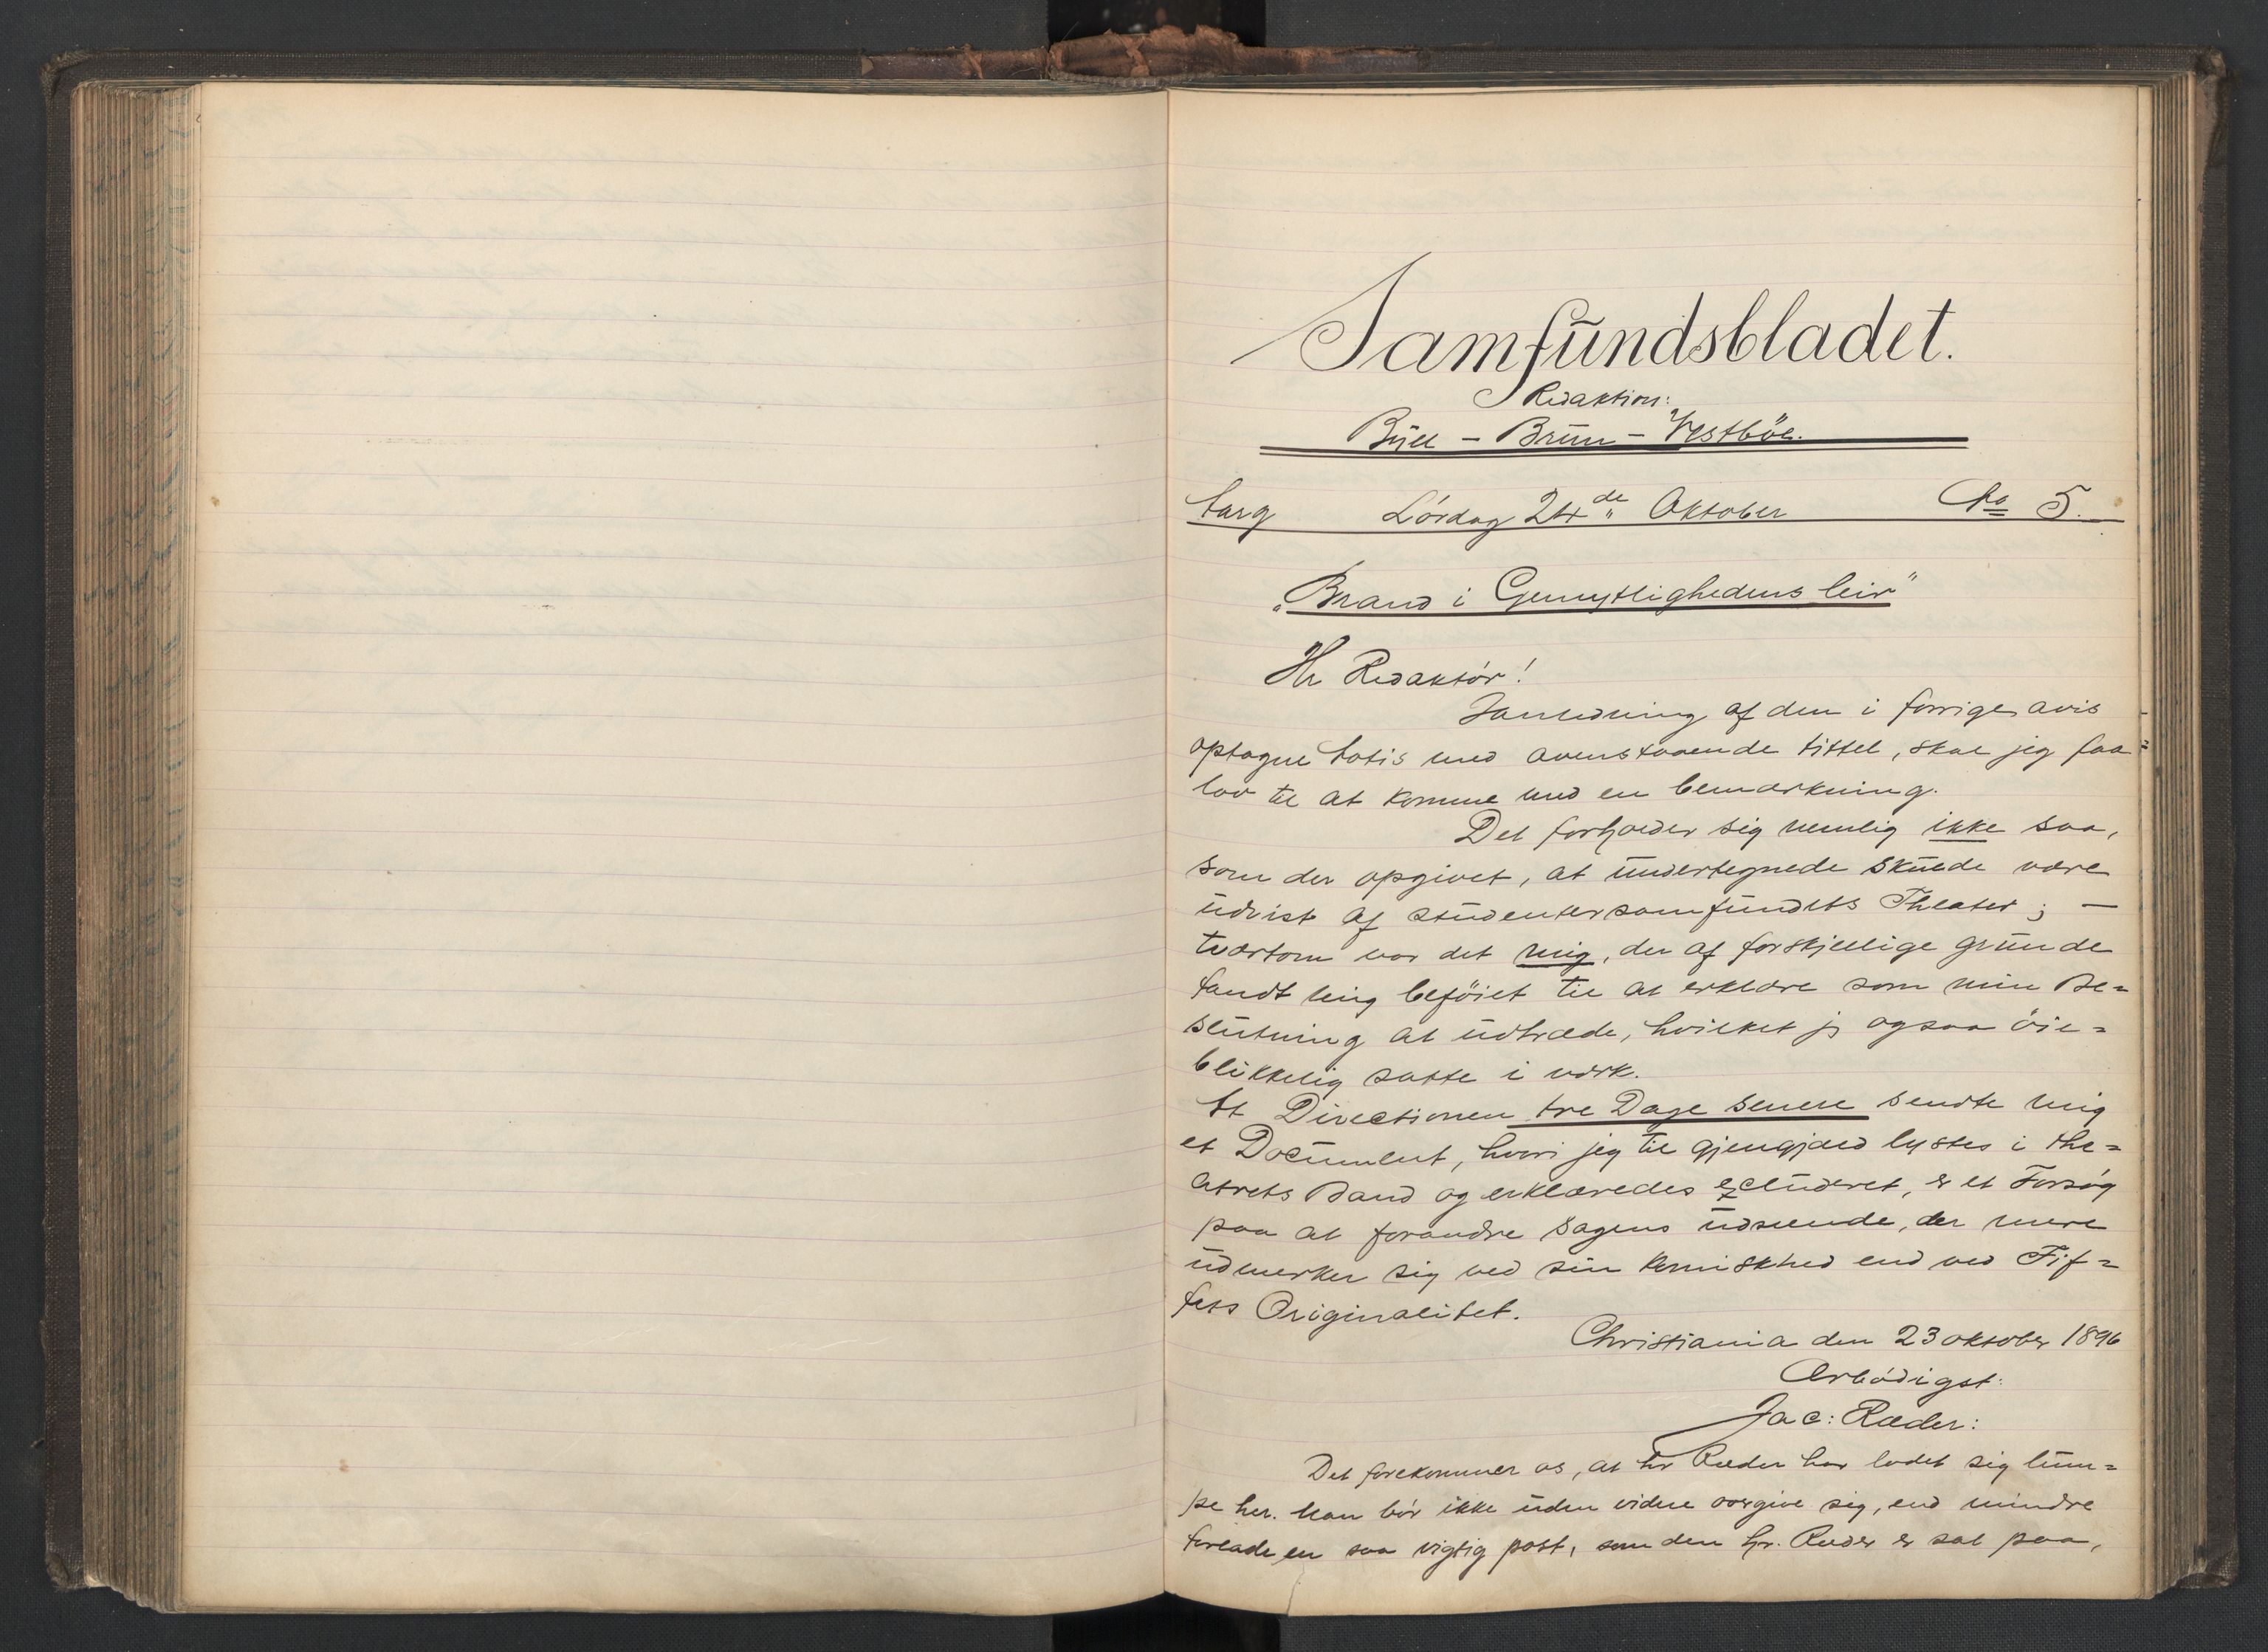 Samfundsbladet.
Redaktion:
Bull – Bruun – Vestbøe.
Aarg Lørdag 24de Oktober No 5.
"Brand i Gemytlighedens leir"
Hr Redaktør!
I anledning af den i forrige avis
optagne Notis med ovenstaaende tittel, skal jeg faa
lov til at komme med en bemærkning.
Det forholder sig nemlig ikke saa,
som der opgivet, at undertegnede skulde være
udvist af studentersamfundets Theater; –
tvertom var det mig, der af forskjellige grunde
fandt mig beføiet til at erklære som min Be=
slutning at udtræde, hvilket jeg ogsaa øie=
blikkelig satte i værk.
At Directionen tre Dage senere sendte mig
et Document, hvori jeg til gjengjæld lystes i the=
atrets Band og erklæredes excluderet, er et Forsøg
paa at forandre sagens udseende, der mere
udmerker sig ved sin komiskhed end ved Fif=
fets Originalitet.
Christiania den 23 oktober 1896
Ærbødigst:
Jac: Ræder:
Det forekommer os, at hr Ræder har ladet sig lum=
pe her. Man bør ikke uden videre overgive sig, end mindre
forlade en saa vigtig post, som den hr. Ræder er sat paa,